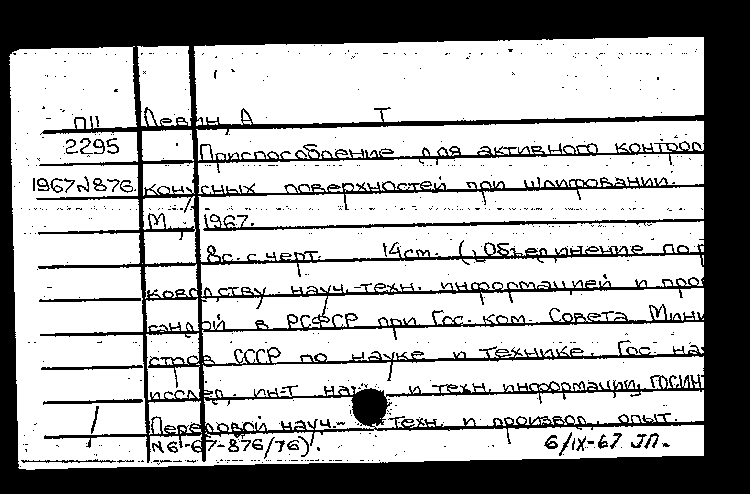 П11 Левин, А Т
2295 Приспособление для активного контрол
1967№876 конусных поверхностей при шлифовании.
М., 1967.
8с. с черт. 14см. (Объединение по р
ководству науч.-техн. информацией и проп
гандой в РСФСР при Гос. ком. Совета Мини
стров СССР по науке и технике. Гос. на
исслед. ин-т науч. и техн. информации, ГОСИНТ
Передовой науч.- техн. и производ. опыт.
№6-67-876/76). 6/IX-67 ЛП.